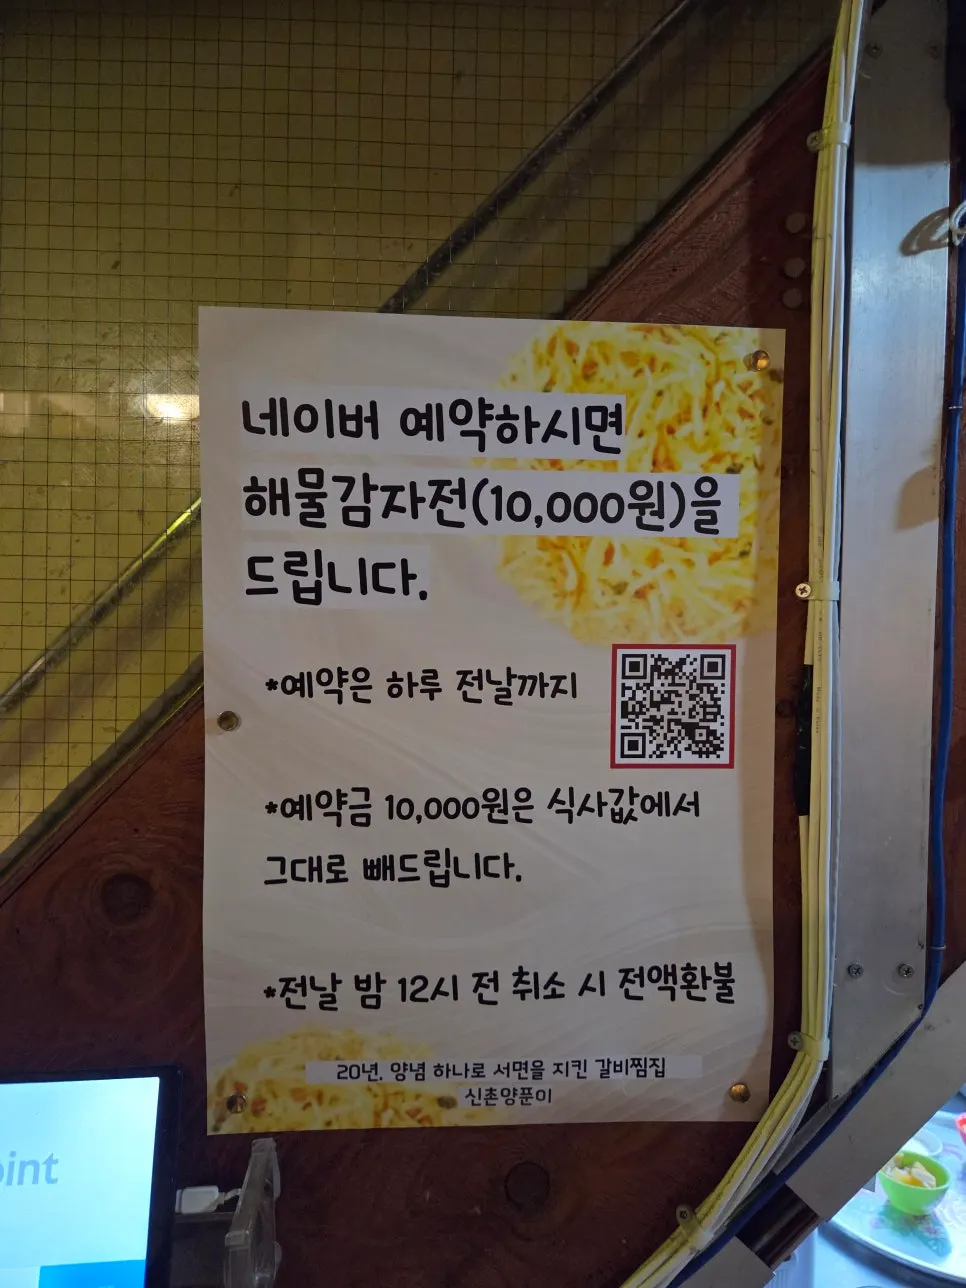 네이버 예약하시면
해물감자전(10,000원)을
드립니다.
*예약은 하루 전날까지
*예약금 10,000원은 식사값에서
그대로 빼드립니다.
*전날 밤 12시 전 취소 시 전액환불
20년. 양념 하나로 서면을 지킨 갈비찜집
신촌양푼이
oint